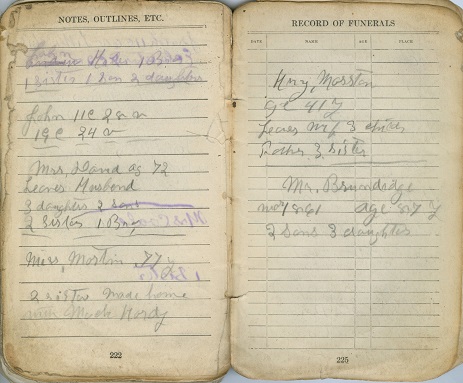 NOTES, OUTLINES, ETC.
1 Sister 1 Son 2 daughters
John 11C
19C 24
Mrs, David ag 72
Leaves Husband
3 daughters 2 sons
2 Sister 1
Mers, Mostin, 77 y
2 sister made home
with Mack Hardy
222
RECORD OF FUNERALS
DATE NAME AGE PLACE
Hury, Morston
41 y
Leaves wif 3 childr
Father 3 sister
Mr. Brundridge
age 87 y
2 Sons 3 daughter
225